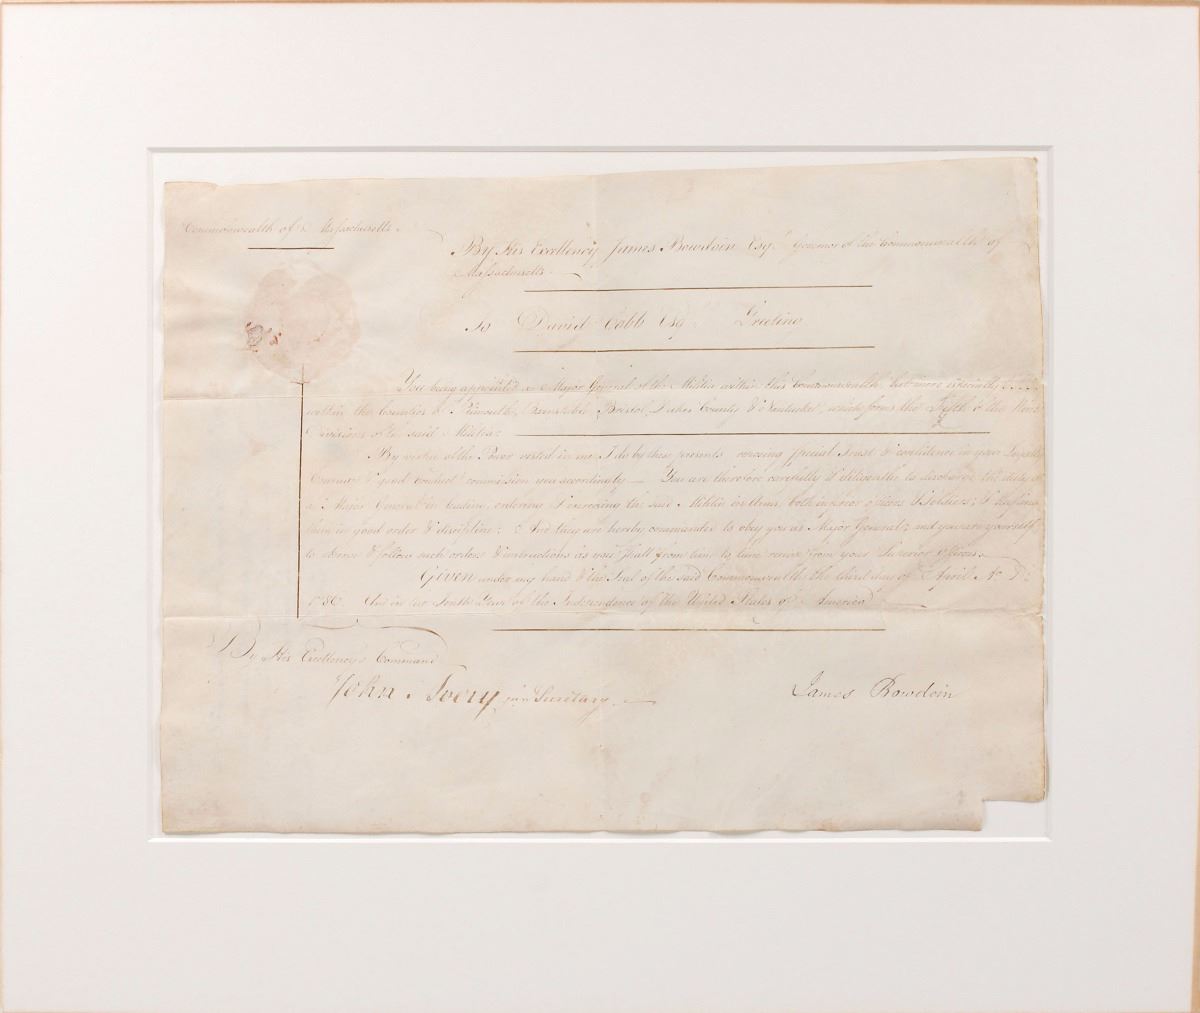 Commonwealth of Massachusetts.
By His Excellency James Bowdoin Esqr. Governor of the Commonwealth of
Massachusetts.
To David Cobb Esqr. Greeting
You being appointed a Major General of the Militia within this Commonwealth, but more especially
within the Counties of Plimouth, Barnstable, Bristol, Dukes County & Nantucket, which forms the Fifth of the Nine
Divisions of the said Militia:
By virtue of the Power vested in me, I do by these presents reposing special Trust & confidence in your Loyalty
Courage & good Conduct commission you accordingly — You are therefore carefully & diligently to discharge the duty of
a Major General in leading, ordering & exercising the said Militia in Arms, both inferior officers & soldiers; & to keep
them in good order & discipline: And they are hereby commanded to obey you as Major General; and you are yourself
to observe & follow such orders & instructions as you shall from time to time receive from your Superior Officers.
Given under my hand & the Seal of the said Commonwealth, the third day of April Ao. Di.
1786. And in the Tenth Year of the Independence of the United States of America.
By His Excellency's Command
John Avery junr Secretary.
James Bowdoin